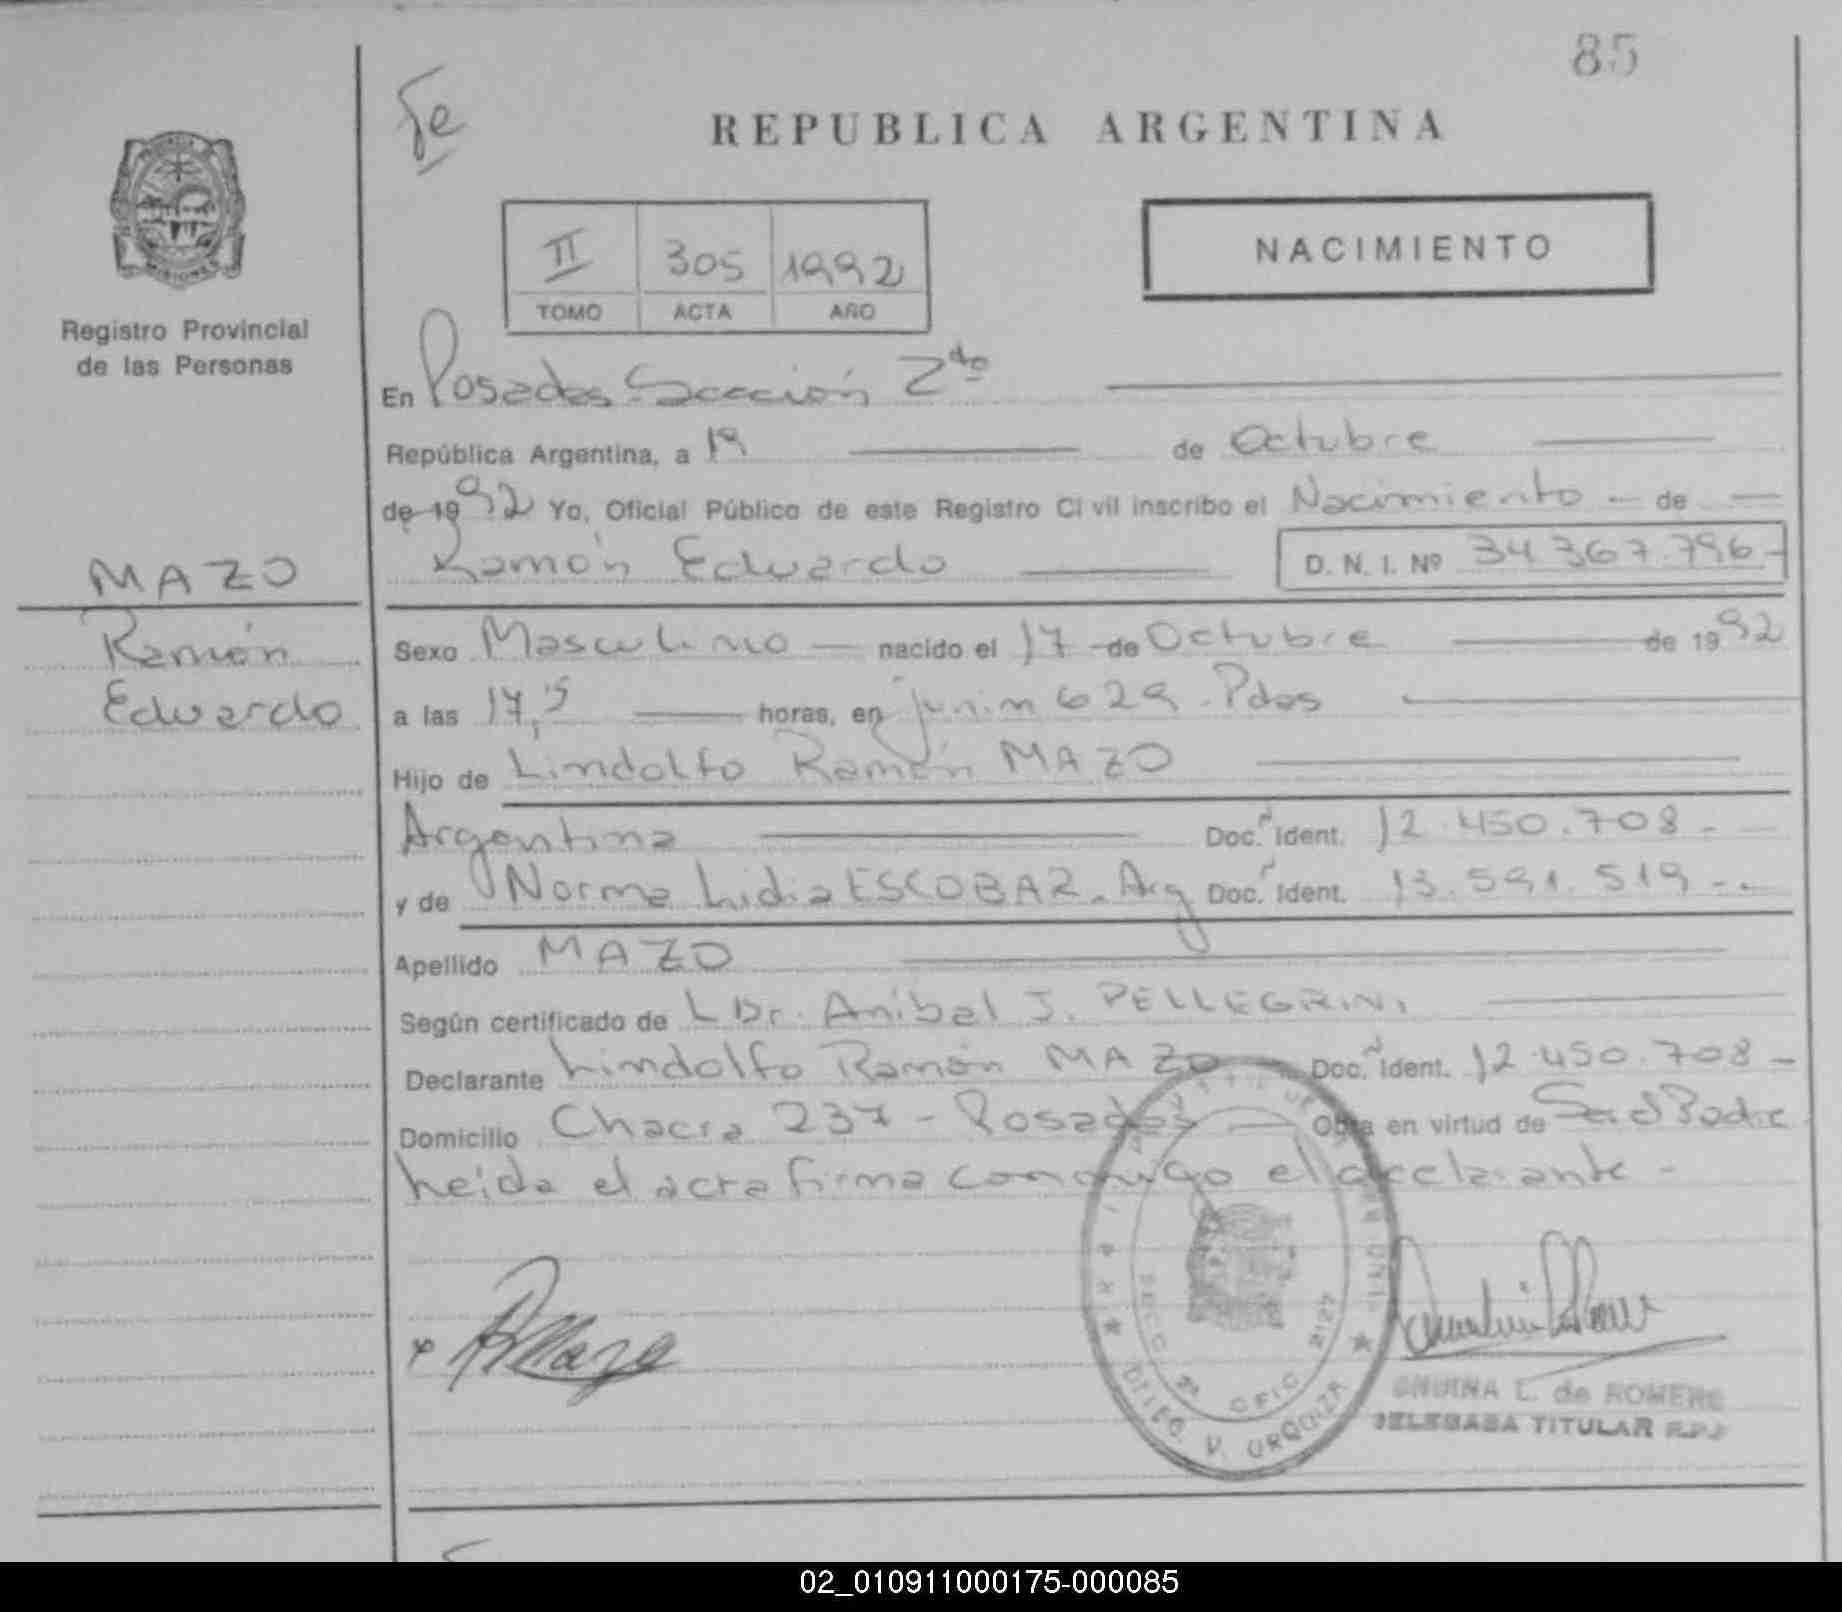 85
Fe
REPUBLICA ARGENTINA
MISIONES
Registro Provincial
de las Personas
II 305 1992
TOMO ACTA AÑO
NACIMIENTO
En Posadas Sección 2da
República Argentina, a 19 de Octubre
de 1992 Yo, Oficial Público de este Registro Civil inscribo el Nacimiento - de -
Ramón Eduardo D. N. I. Nº 34.367.796-
MAZO
Ramón
Eduardo
Sexo Masculino nacido el 17 de Octubre de 1992
a las 17,5 horas, en Junin 629. Pdas
Hijo de Lindolfo Ramón MAZO
Argentina Doc. Ident. 12.450.708.-
y de Norma Lidia ESCOBAR. Arg Doc. Ident. 13.591.519-.
Apellido MAZO
Según certificado de L Dr. Aníbal J. PELLEGRINI
Declarante Lindolfo Ramón MAZO Doc. Ident. 12.450.708-
Domicilio Chacra 237 - Posadas Obra en virtud de Ser el Padre
Leida el acta firma conmigo el declarante -
x RMazo
SECC 2ª OFIC 2127
V. URQUIZA
L. de ROMERO
DELEGADA TITULAR R.P.P
02_010911000175-000085